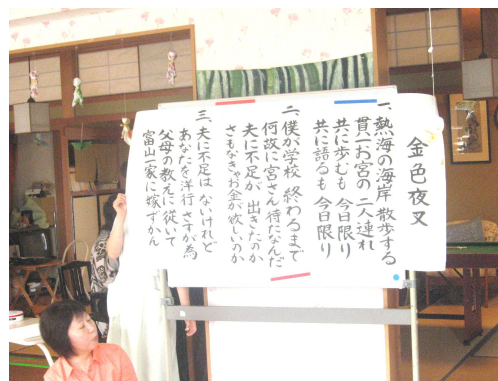 金色夜叉
一、熱海の海岸 散歩する
貫一お宮の 二人連れ
共に歩むも 今日限り
共に語るも 今日限り
二、僕が学校 終わるまで
何故に宮さん 待たなんだ
夫に不足が 出きたのか
さもなきゃお金が 欲しいのか
三、夫に不足は ないけれど
あなたを洋行 さすが為
父母の教えに 従いて
富山一家に 嫁ずかん